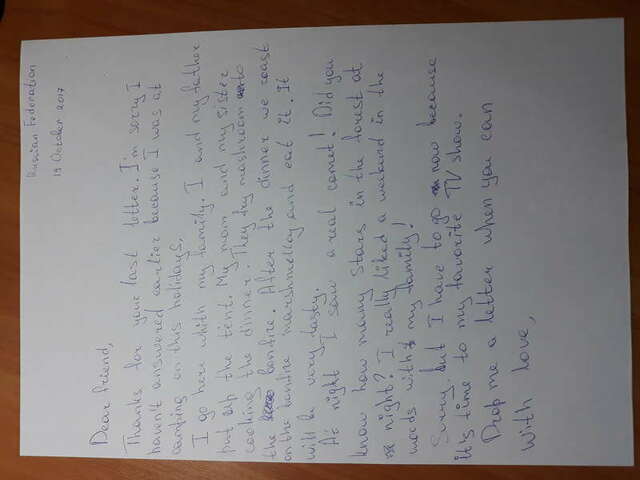 Russian Federation
19 October 2017
Dear friend,
Thanks for your last letter. I'm sorry I
haven't answered earlier because I was at
camping on this holidays.
I go here whith my family. I and my father
put up the tent. My mom and my sister
cooking the dinner. They fry mashroom onto
the bonfire. After the dinner we roast
on the bonfire marshmellow and eat it. It
will be very tasty.
At night I saw a real comet! Did you
know how many stars in the forest at
night? I really liked a weekend in the
woods with my family!
Sorry, but I have to go now because
it's time to my favorite TV show.
Drop me a letter when you can
With love,